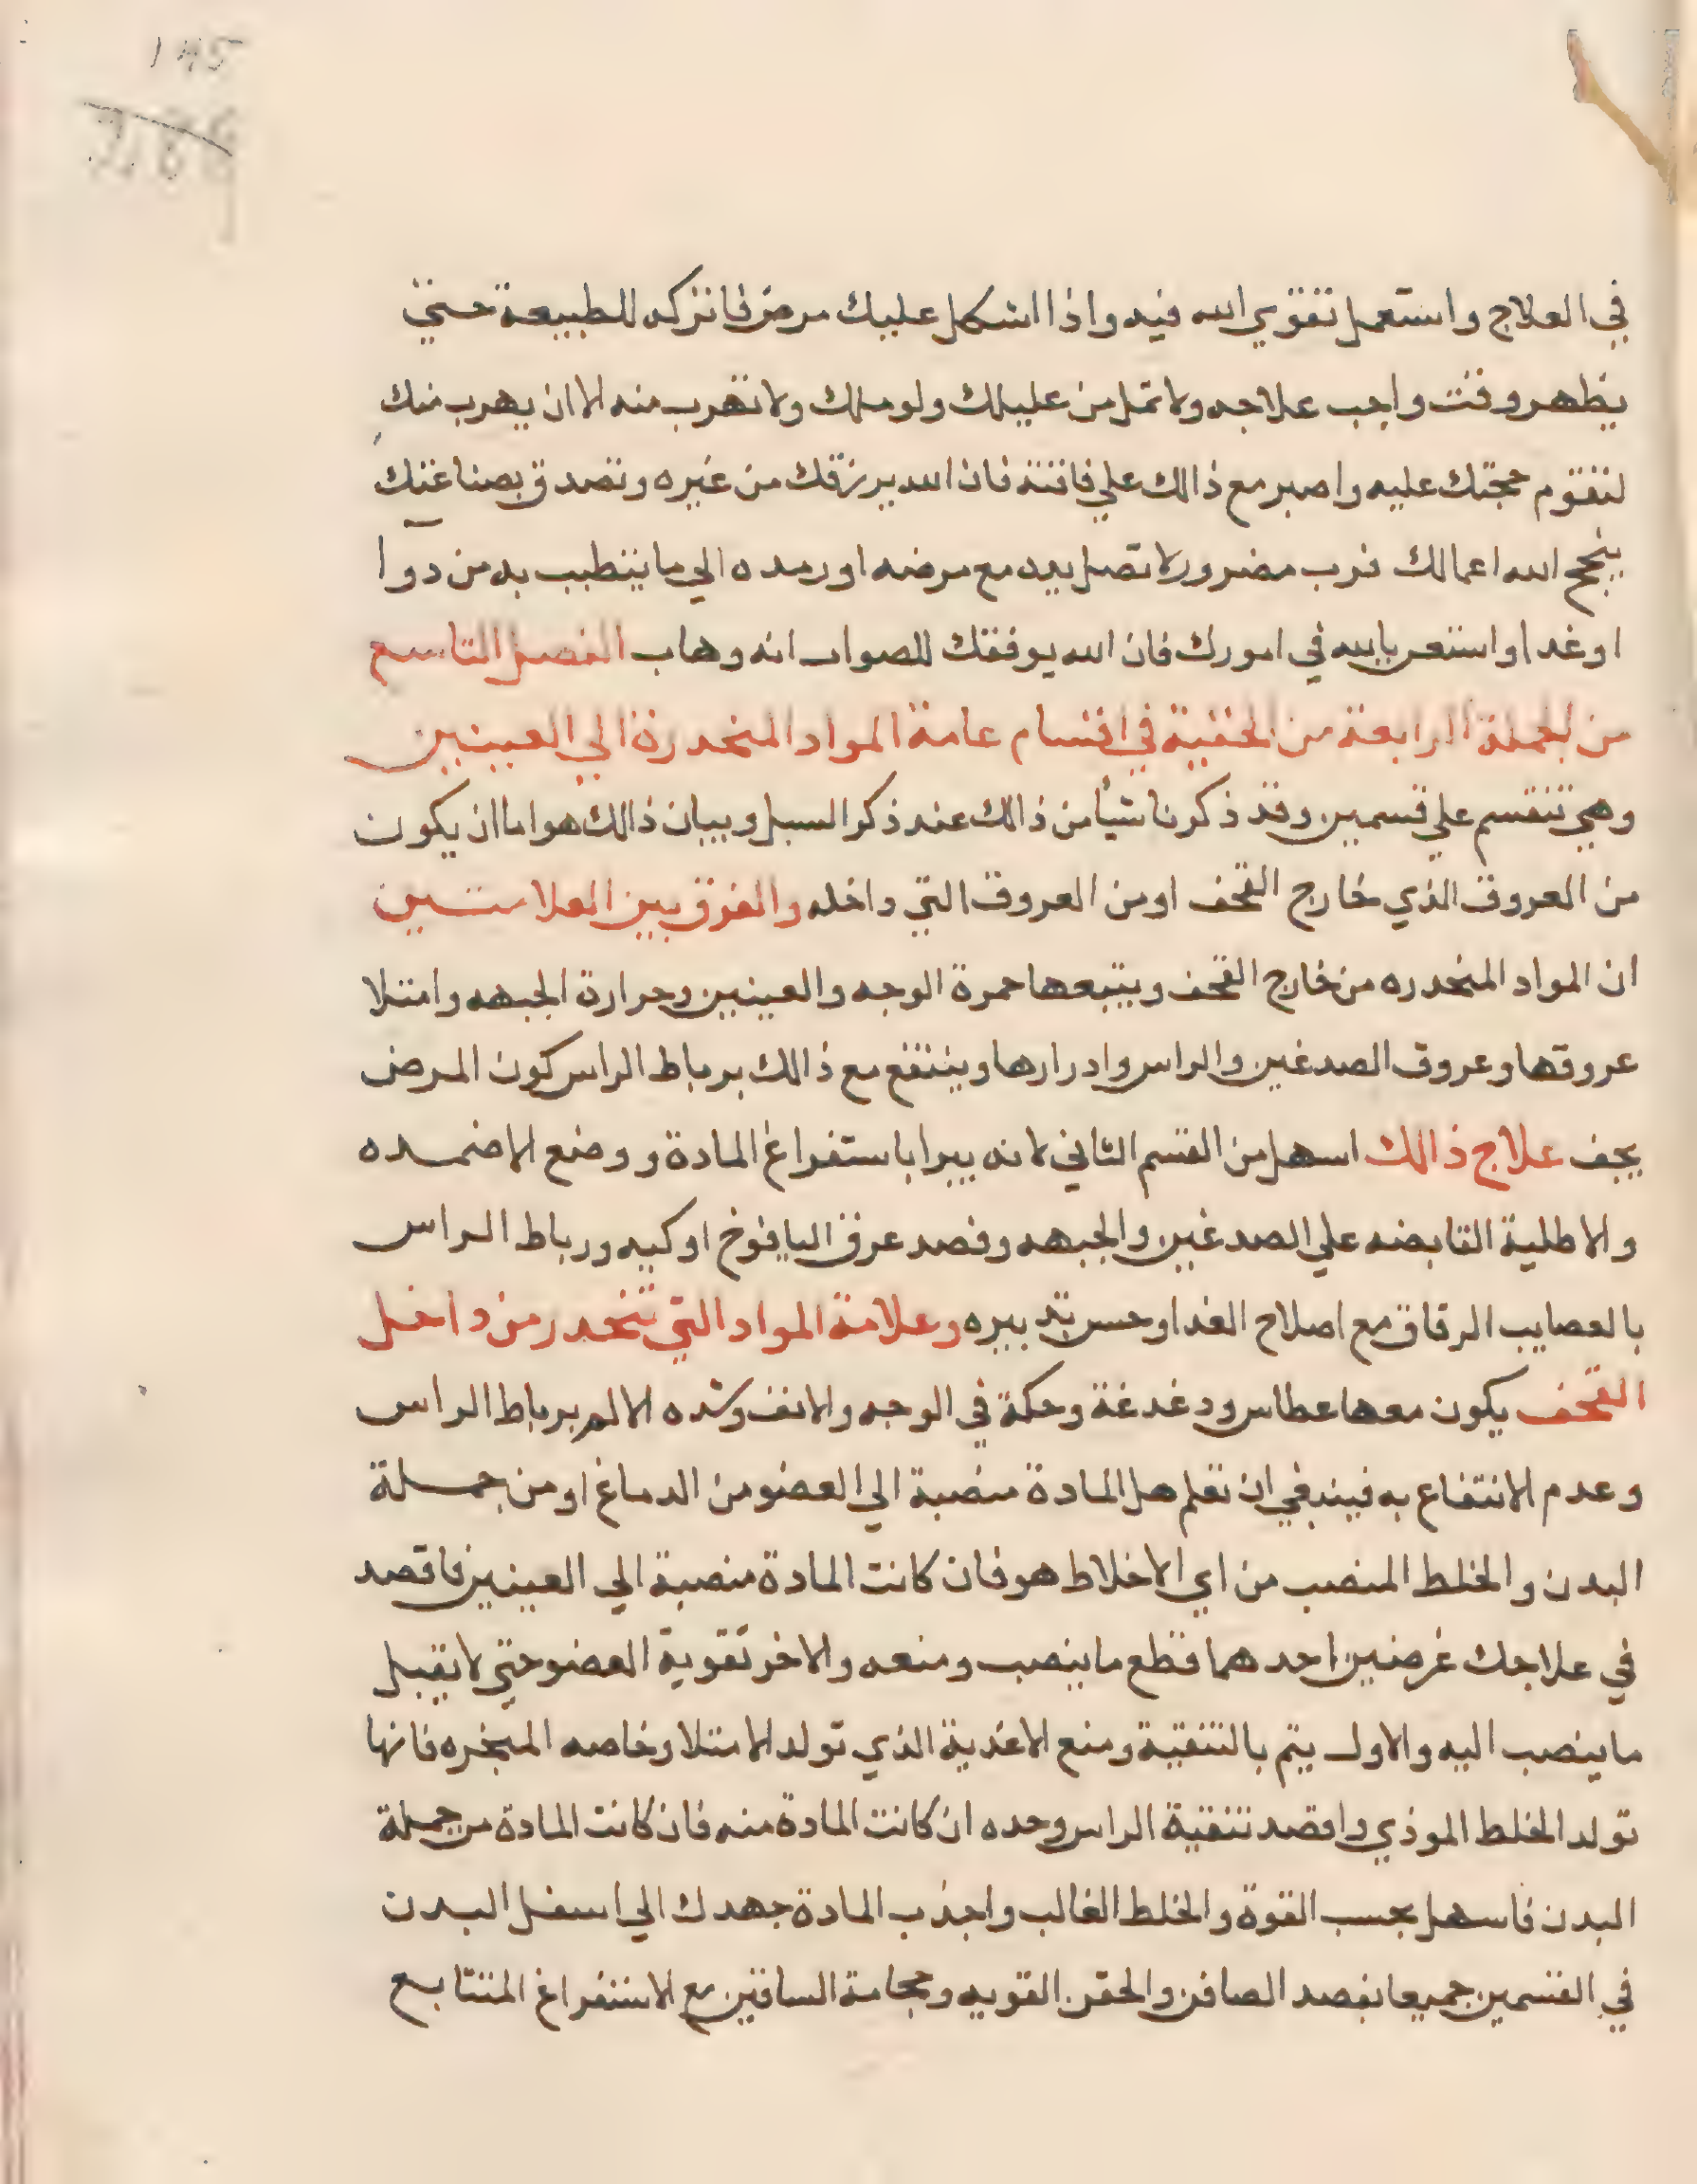 في العلاج واستعمل تقوي الله فيه واذا اشكل عليك مرض فاتركه للطبيعة حتي
يظهر وقت واجب علاجه ولا تمل من عليلك ولو ملك ولا تهرب منه الا ان يهرب منك
لتقوم حجتك عليه واصبر مع ذالك علي فاقته فان الله يرزقك من غيره وتصدق بصناعتك
ينجح الله اعمالك فرب مضرور لا تصل يده مع مرضه او رمده الي ما يتطبب به من دوا
او غدا واستعن بالله في امورك فان الله يوفقك للصواب انه وهاب الفصل التاسع
من الجملة الرابعة من الخفية في اقسام عامة المواد المنحدرة الي العينين
وهي تنقسم علي قسمين وقد ذكرنا شيأ من ذالك عند ذكر السبل وبيان ذالك هو اما ان يكون
من العروق الذي خارج القحف او من العروق التي داخله والفرق بين العلامتين
ان المواد المنحدره من خارج القحف ويتبعها حمرة الوجه والعينين وحرارة الجبهه وامتلا
عروقها وعروق الصدغين والراس وادرارها وينتفع مع ذالك برباط الراس كون المرض
يجف علاج ذالك اسهل من القسم الثاني لانه يبرا باستفراغ المادة ووضع الاضمده
والاطلية القابضه علي الصدغين والجبهه وفصد عرق اليافوخ او كيه ورباط الراس
بالعصايب الرقاق مع اصلاح الغدا وحسن تدبيره وعلامة المواد التي تنحدر من داخل
القحف يكون معها عطاس ودغدغة وحكة في الوجه والانف وشده الالم برباط الراس
وعدم الانتفاع به فينبغي ان تعلم هل المادة منضبة الي العضو من الدماغ او من جملة
البدن والخلط المنصب من اي الاخلاط هو فان كانت المادة منصبة الي العينين فاقصد
في علاجك غرضين احدهما قطع ما ينصب ومنعه والاخر تقوية العضو حتي لا يقبل
ما ينصب اليه والاول يتم بالتنقية ومنع الاغذية الذي تولد الامتلا وخاصه المبخره فانها
تولد الخلط الموذي واقصد تنقية الراس وحده ان كانت المادة منه فان كانت المادة من جملة
البدن فاسهل بحسب القوة والخلط الغالب واجذب المادة جهدك الي اسفل البدن
في القسمين جميعا بفصد الصافن والحقن القويه وحجامة الساقين مع الاستفراغ المتتابع